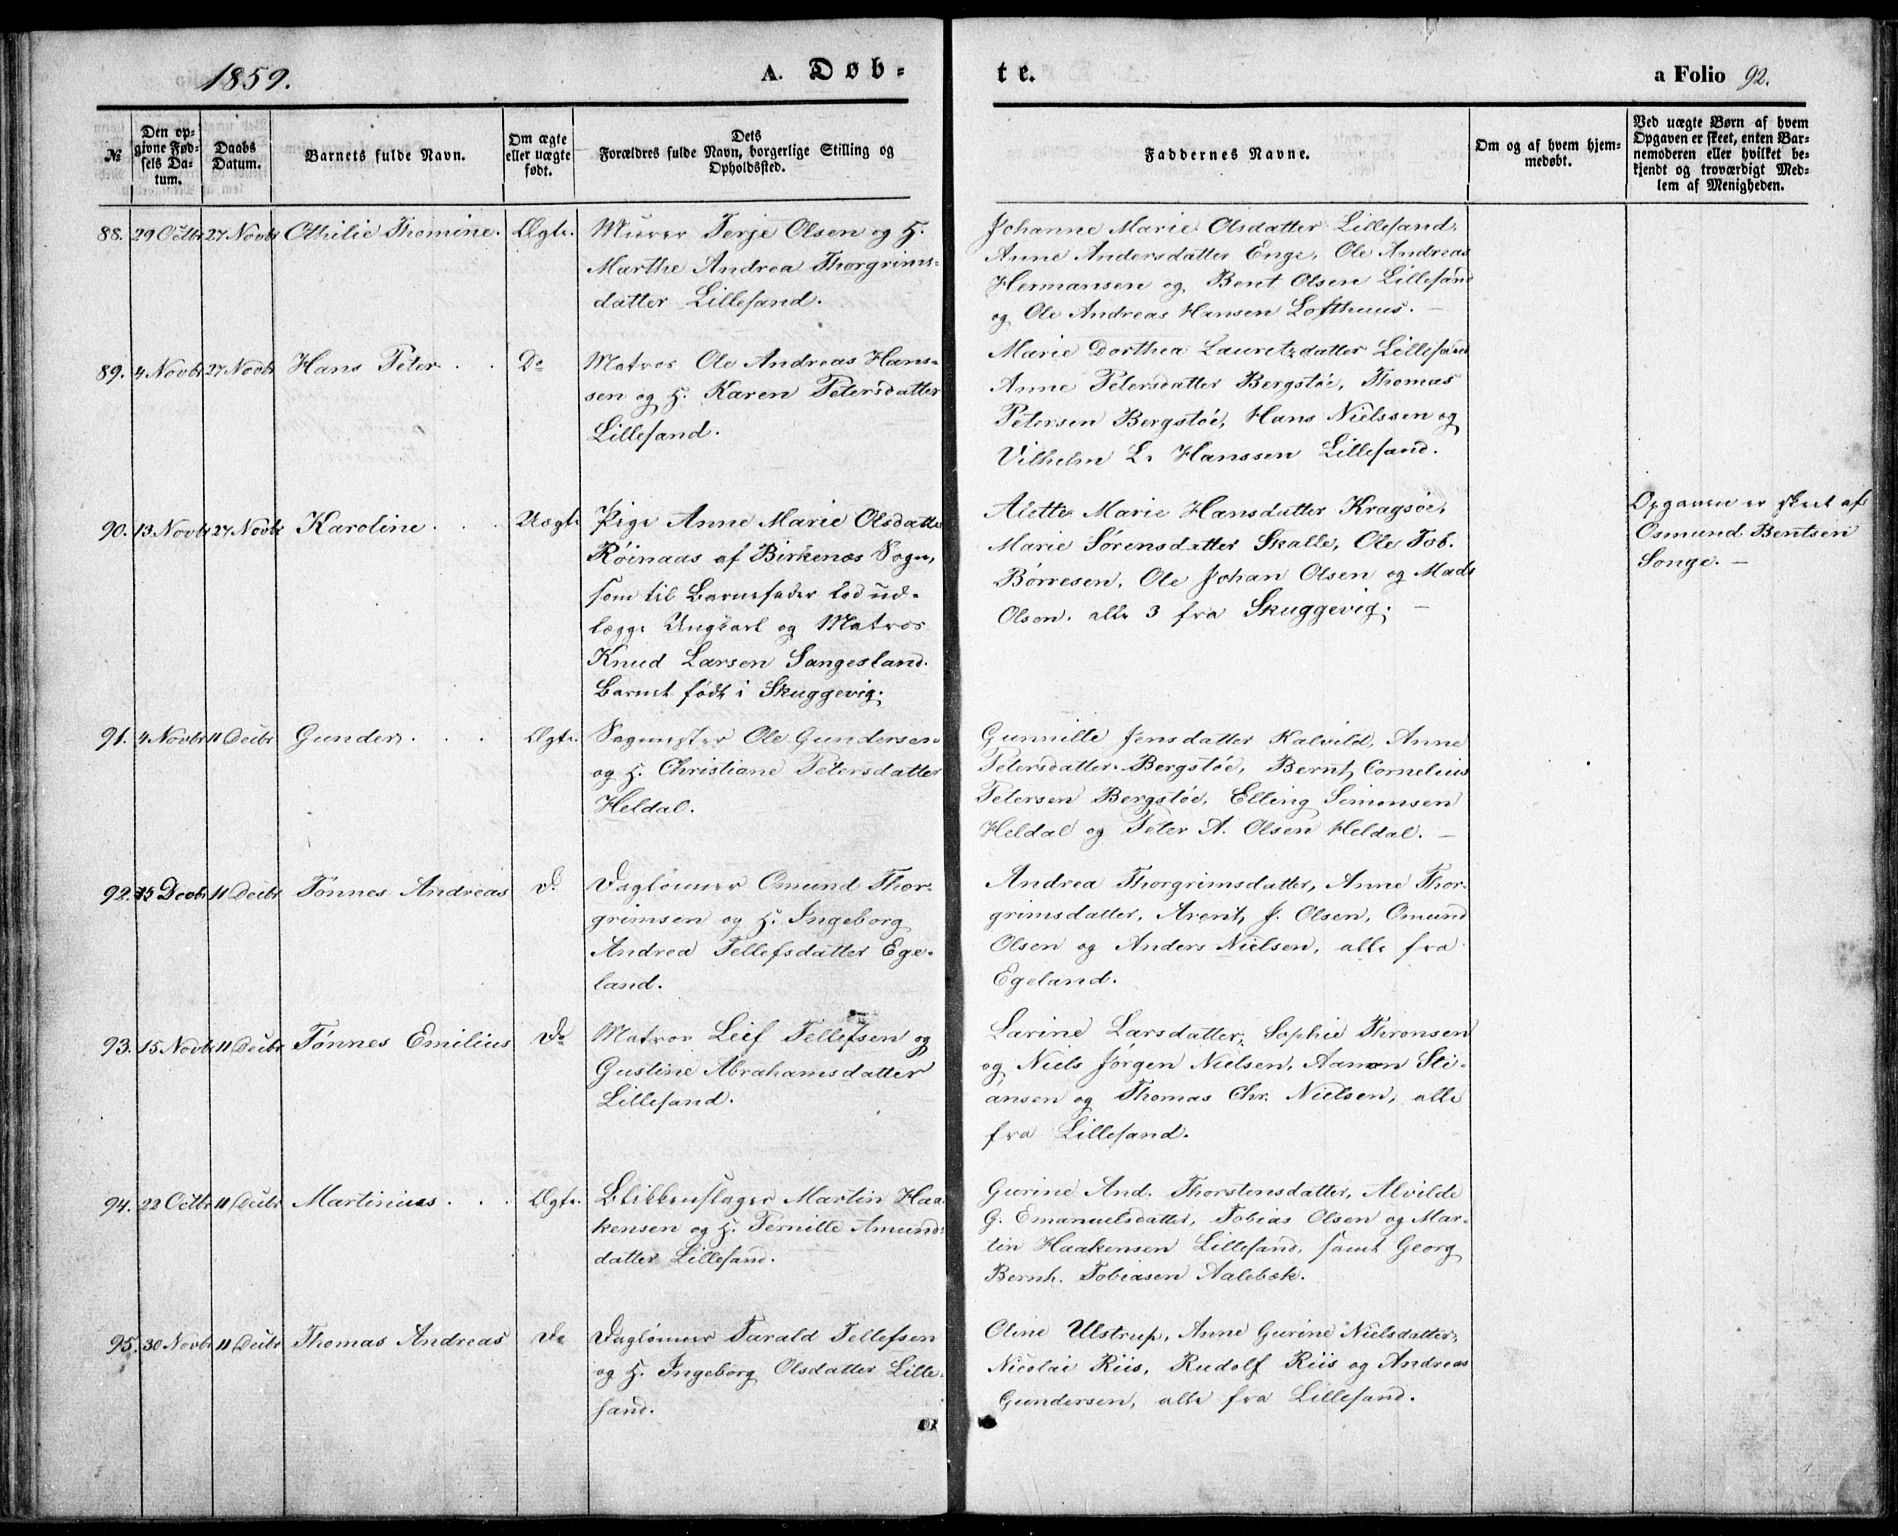 1859.
A. Døb-
te.
a Folio 92.
№
Den op-
givne Fød-
sels Da-
tum.
Daabs
Datum.
Barnets fulde Navn.
Om ægte
eller uægte
født.
Dets
Forældres fulde Navn, borgerlige Stilling og
Opholdssted.
Faddernes Navne.
Om og af hvem hjem-
medøbt.
Ved uægte Børn af hvem
Opgaven er skeet, enten Bar-
nemoderen eller hvilket be-
kjendt og troværdigt Med-
lem af Menigheden.
88. 29 Octbr 27 Novbr Othilie Thomine. Ægte.
Murer Terje Olsen og H.
Marthe Andrea Thorgrims-
datter Lillesand.
Johanne Marie Olsdatter Lillesand,
Anne Andersdatter Enge, Ole Andreas
Hermansen og Bent Olsen Lillesand
og Ole Andreas Hansen Lofthuus. —
89. 4 Novbr 27 Novbr Hans Peter . . Do
Matros Ole Andreas Hans-
sen og H. Karen Petersdatter
Lillesand.
Marie Dorthea Lauretzdatter Lillesand
Anne Petersdatter Bergstøe, Thomas
Petersen Bergstøe, Hans Nielssen og
Vilhelm L. Hanssen Lillesand.
90. 13 Novbr 27 Novbr Karoline . . Uægte
Pige Anne Marie Olsdatter
Røinaas af Birkenæs Sogn,
som til Barnefader lod ud-
lægge Ungkarl og Matros
Knud Larsen Sangesland.
Barnet født i Skuggevig.
Alette Marie Hansdatter Kragsøe,
Marie Sørensdatter Skalle, Ole Tob.
Børresen, Ole Johan Olsen og Mads
Olsen, alle 3 fra Skuggevig. —
Opgaven er skeet af
Osmund Bentsen
Songe. —
91. 4 Novbr 11 Decbr Gunder . . . Ægte.
Sagmester Ole Gundersen
og H. Christiane Petersdatter
Heldal.
Gunnille Jensdatter Kalvild, Anne
Petersdatter Bergstøe, Bernt Cornelius
Petersen Bergstøe, Elling Simonsen
Heldal og Peter A. Olsen Heldal. —
92. 15 Decbr 11 Decbr Tønnes Andreas Do
Daglønner Omund Thor-
grimsen og H. Ingeborg
Andrea Tellefsdatter Ege-
land.
Andrea Thorgrimsdatter, Anne Thor-
grimsdatter, Arent J. Olsen, Omund
Olsen og Anders Nielsen, alle fra
Egeland.
93. 15 Novbr 11 Decbr Tønnes Emilius Do
Matros Leif Tellefsen og
Gustine Abrahamsdatter
Lillesand.
Larine Larsdatter, Sophie Thronsen
og Niels Jørgen Nielsen, Aanon Sti-
ansen og Thomas Chr. Nielsen, alle
fra Lillesand.
94. 22 Octbr 11 Decbr Martinius . . Ægte.
Blikkenslager Martin Haa-
kensen og H. Pernille Amunds
datter Lillesand.
Gurine And. Thorstensdatter, Alvilde
G. Emanuelsdatter, Tobias Olsen og Mar-
tin Haakensen Lillesand, samt Georg
Bernh. Tobiasen Aalebæk.
95. 30 Novbr 11 Decbr Thomas Andreas Do
Daglønner Tarald Tellefsen
og H. Ingeborg Olsdatter Lille-
sand.
Oline Ulstrup, Anne Gurine Nielsdatter,
Nicolai Riis, Rudolf Riis og Andreas
Gundersen, alle fra Lillesand.